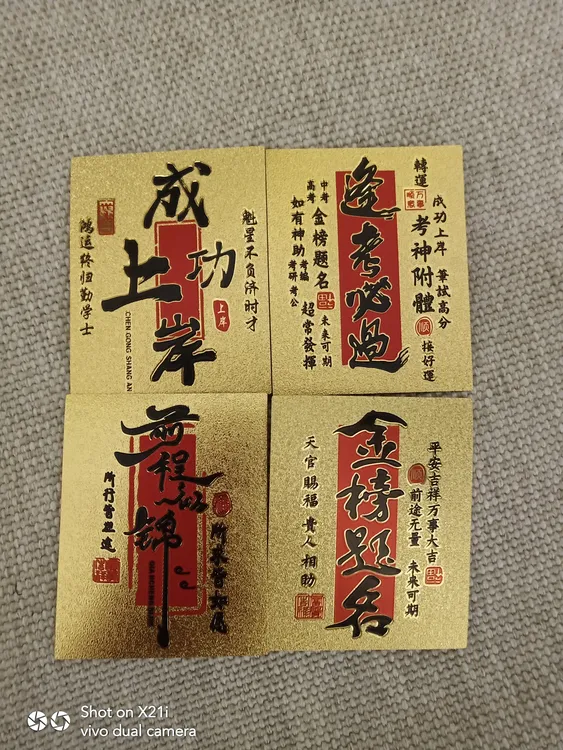 成功上岸
魁星不负济时才
上岸
鸿运终归勤学士
CHEN GONG SHANG AN
逢考必過
轉運
万事
顺意
成功上岸 筆試高分
考神附體
順
接好運
中考
高考
金榜题名
如有神助
考编
考研
考公
未来可期
超常發揮
前程似锦
所求皆如愿
所行皆坦途
金榜题名
平安吉祥万事大吉
前途无量 未来可期
天官賜福 貴人相助
Shot on X21i
vivo dual camera